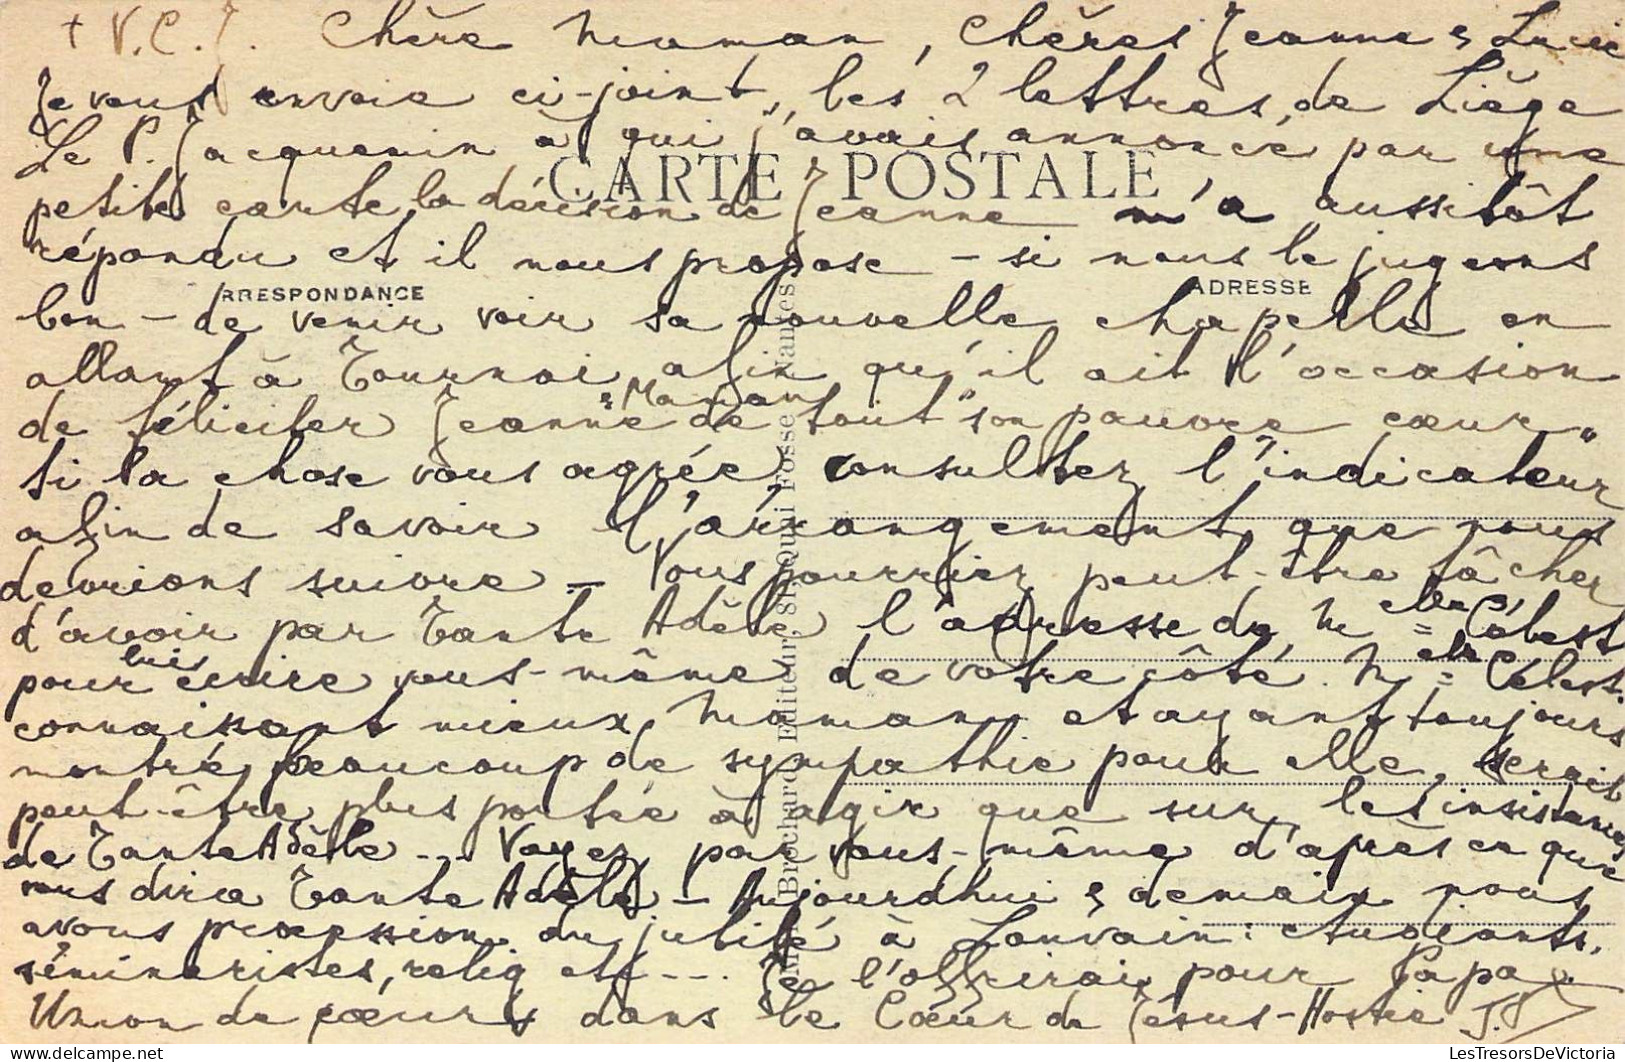 + V.C.J. Chère Maman, Chères Jeanne & Lucie
Je vous envoie ci-joint, les 2 lettres de Liège
Le P. Jacquemin à qui j'avais annoncé par une
CARTE POSTALE
petite carte la décision de Jeanne m'a aussitôt
répondu et il nous propose - si nous le jugeons
RRESPONDANCE
ADRESSE
bon - de venir voir sa nouvelle chapelle en
allant à Tournai, afin qu'il ait l'occasion
de féliciter Jeanne & Maman de tout "son pauvre cœur"
Si la chose vous agrée, consultez l'indicateur
afin de savoir l'arrangement que nous
devrions suivre - Vous pourriez peut-être tâcher
d'avoir par Tante Adèle l'adresse de M Célest
pour lui écrire vous-même de votre côté. M Célest.
connaissant mieux Maman et ayant toujours
montré beaucoup de sympathie pour elle, serait
peut-être plus portée à agir que sur les insistances
de Tante Adèle - Voyez par vous-même d'après ce que
vous dira Tante Adèle - Aujourdhui & demain nous
avons procession du jubilé à Louvain: étudiants,
séminaristes, relig etc--- Je l'offrirai pour Papa
Union de cœurs dans le Cœur de Jésus-Hostie J.
Brouchard Editeur, Quai Fosse Nantes
LesTresorsDeVictoria